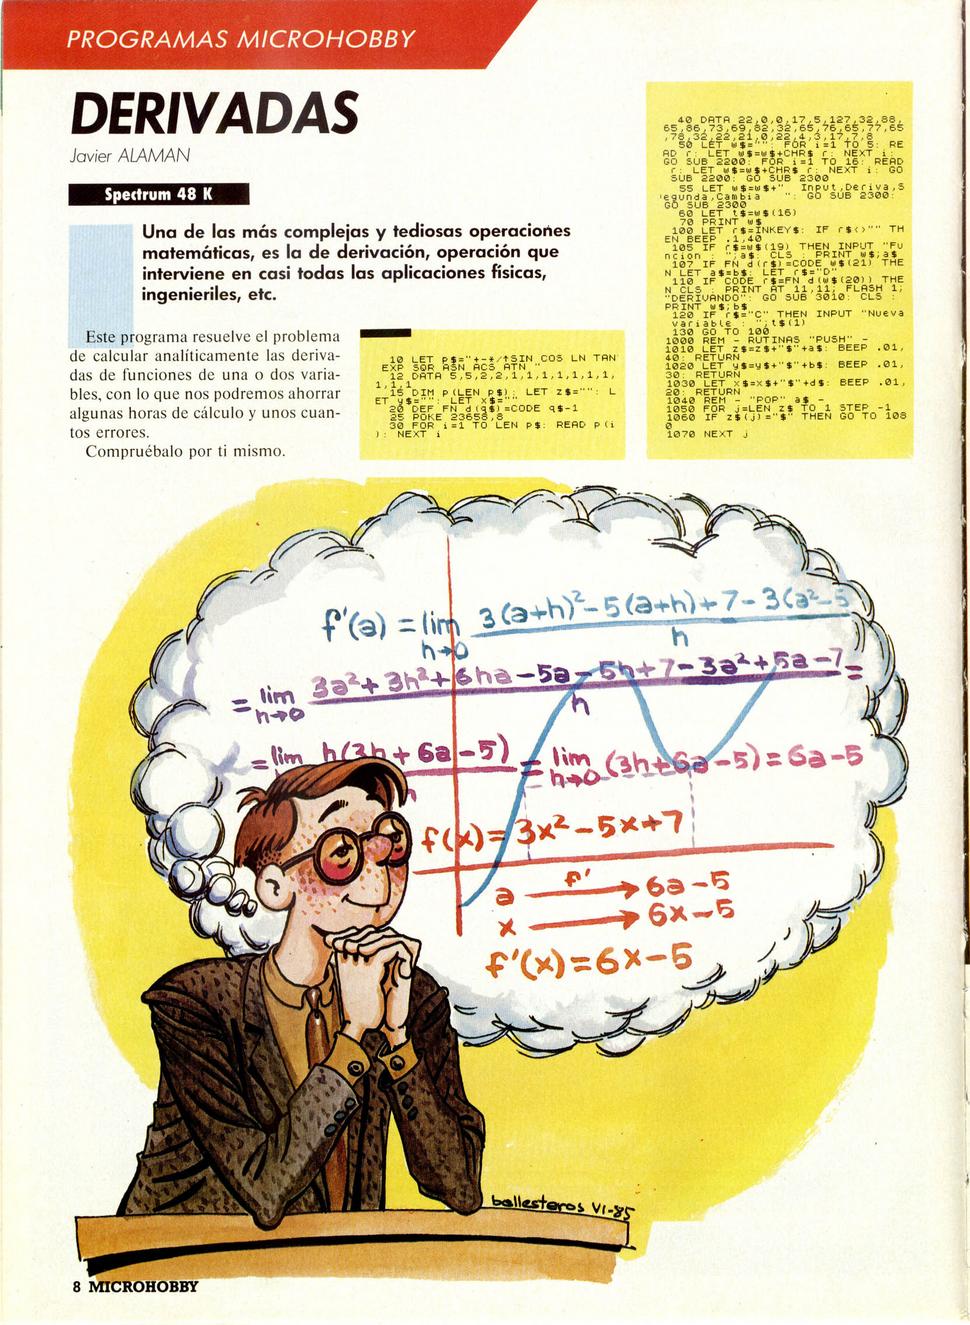 PROGRAMAS MICROHOBBY
DERIVADAS
Javier ALAMAN
Spectrum 48 K
Una de las más complejas y tediosas operaciones
matemáticas, es la de derivación, operación que
interviene en casi todas las aplicaciones físicas,
ingenieriles, etc.
Este programa resuelve el problema
de calcular analíticamente las deriva-
das de funciones de una o dos varia-
bles, con lo que nos podremos ahorrar
algunas horas de cálculo y unos cuan-
tos errores.
Compruébalo por ti mismo.
10 LET p$="+-*/↑SIN COS LN TAN
EXP SQR ASN ACS ATN "
12 DATA 5,5,2,2,1,1,1,1,1,1,1,
1,1,1
15 DIM p(LEN p$): LET z$="": L
ET y$="": LET x$=""
20 DEF FN d(q$)=CODE q$-1
25 POKE 23658,8
30 FOR i=1 TO LEN p$: READ p(i
): NEXT i
40 DATA 22,0,0,17,5,127,32,88,
65,86,73,69,82,32,65,76,65,77,65
,78,32,22,21,0,22,4,3,17,7,8
50 LET w$="": FOR i=1 TO 5: RE
AD r: LET w$=w$+CHR$ r: NEXT i:
GO SUB 2200: FOR i=1 TO 16: READ
r: LET w$=w$+CHR$ r: NEXT i: GO
SUB 2200: GO SUB 2300
55 LET w$=w$+" Input,Deriva,S
egunda,Cambia ": GO SUB 2300:
GO SUB 2300
60 LET t$=w$(16)
70 PRINT w$
100 LET r$=INKEY$: IF r$<>"" TH
EN BEEP .1,40
105 IF r$=w$(19) THEN INPUT "Fu
ncion : ";a$: CLS : PRINT w$;a$
107 IF FN d(r$)=CODE w$(21) THE
N LET a$=b$: LET r$="D"
110 IF CODE r$=FN d(w$(20)) THE
N CLS : PRINT AT 11,11; FLASH 1;
"DERIVANDO": GO SUB 3010: CLS :
PRINT w$;b$
120 IF r$="C" THEN INPUT "Nueva
variable : ";t$(1)
130 GO TO 100
1000 REM - RUTINAS "PUSH" -
1010 LET z$=z$+"$"+a$: BEEP .01,
40: RETURN
1020 LET y$=y$+"$"+b$: BEEP .01,
30: RETURN
1030 LET x$=x$+"$"+d$: BEEP .01,
20: RETURN
1040 REM - "POP" a$ -
1050 FOR j=LEN z$ TO 1 STEP -1
1060 IF z$(j)="$" THEN GO TO 108
0
1070 NEXT j
f'(a) = lim 3(a+h)²-5(a+h)+7-3(a²-5
h→0 h
= lim 3a²+3h²+6ha-5a-5h+7-3a²+5a-7 =
h→0 h
= lim h(3h+6a-5) = lim (3h+6a-5) = 6a-5
h h→0
f(x)=3x²-5x+7
a f' → 6a-5
x → 6x-5
f'(x)=6x-5
ballesteros VI-85
8 MICROHOBBY